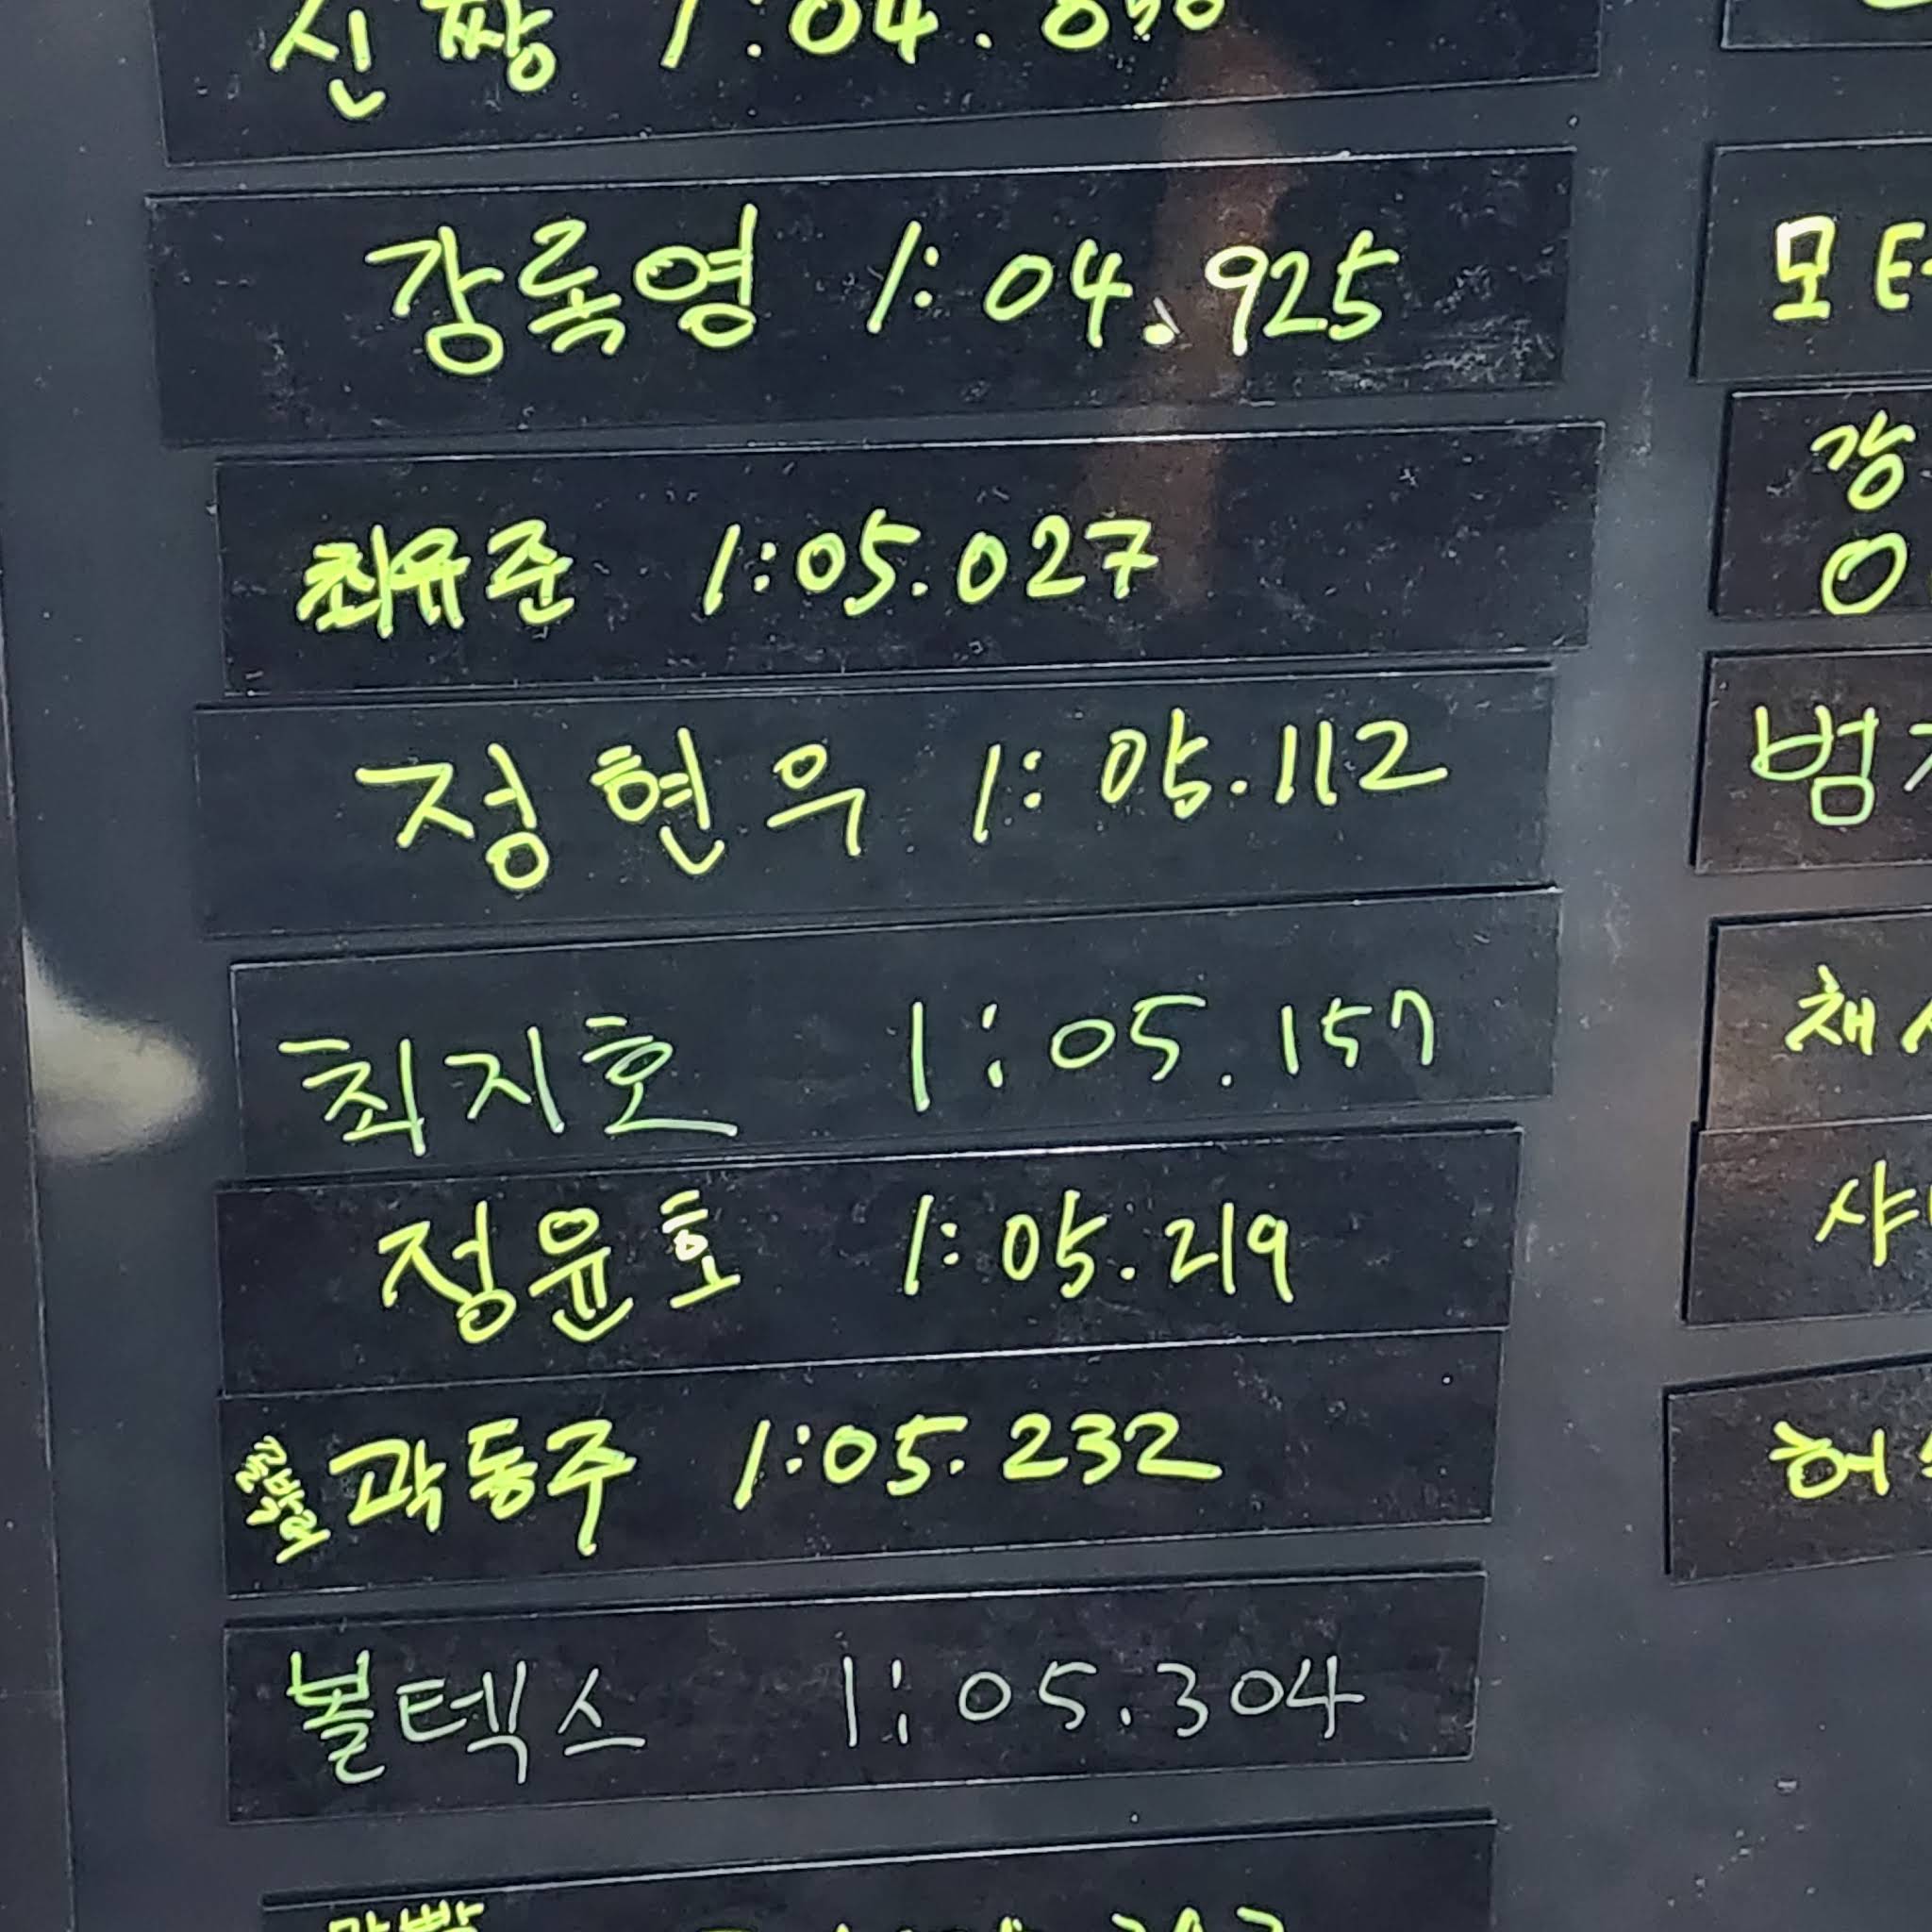 신짱 1:04.
강록영 1:04.925
최유준 1:05.027
정현우 1:05.112
최지호 1:05.157
정윤호 1:05.219
곽동주 1:05.232
볼텍스 1:05.304
모터
강
범
채
샤
허